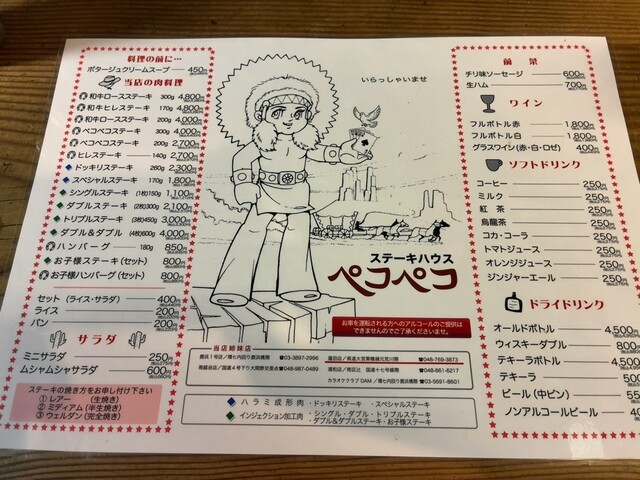 料理の前に…
ポタージュクリームスープ 450円
当店の肉料理
和牛ロースステーキ 300g 4,800円
和牛ヒレステーキ 170g 4,800円
和牛ロースステーキ 200g 4,000円
ペコペコステーキ 300g 4,000円
ペコペコステーキ 200g 2,700円
ヒレステーキ 140g 2,700円
ドッキリステーキ 260g 2,300円
スペシャルステーキ 170g 1,800円
シングルステーキ (1枚)150g 1,100円
ダブルステーキ (2枚)300g 2,100円
トリプルステーキ (3枚)450g 3,000円
ダブル&ダブル (4枚)600g 4,000円
ハンバーグ 180g 850円
お子様ステーキ(セット) 800円
お子様ハンバーグ(セット) 800円
セット (ライス・サラダ) 400円
ライス 200円
パン 200円
サラダ
ミニサラダ 250円
ムシャムシャサラダ 600円
ステーキの焼き方をお申し付け下さい
① レアー (生焼き)
② ミディアム (半生焼き)
③ ウェルダン (完全焼き)
いらっしゃいませ
ステーキハウス
ペコペコ
お車を運転される方へのアルコールのご提供は
できませんのでご了承くださいませ。
当店姉妹店
☎03-3897-2996
☎048-769-3873
☎048-987-0489
☎048-861-6217
カラオケクラブ DAM
☎03-5691-8601
ハラミ成形肉 ・ドッキリステーキ ・スペシャルステーキ
インジェクション加工肉 ・シングル・ダブル・トリプルステーキ
・ダブル&ダブルステーキ・お子様ステーキ
前菜
チリ味ソーセージ 600円
生ハム 700円
ワイン
フルボトル赤 1,800円
フルボトル白 1,800円
グラスワイン(赤・白・ロゼ) 400円
ソフトドリンク
コーヒー 250円
ミルク 250円
紅茶 250円
烏龍茶 250円
コカ・コーラ 250円
トマトジュース 250円
オレンジジュース 250円
ジンジャーエール 250円
ドライドリンク
オールドボトル 4,500
ウィスキーダブル 800
テキーラボトル 4,500
テキーラ 500
ビール(中ビン)
ノンアルコールビール